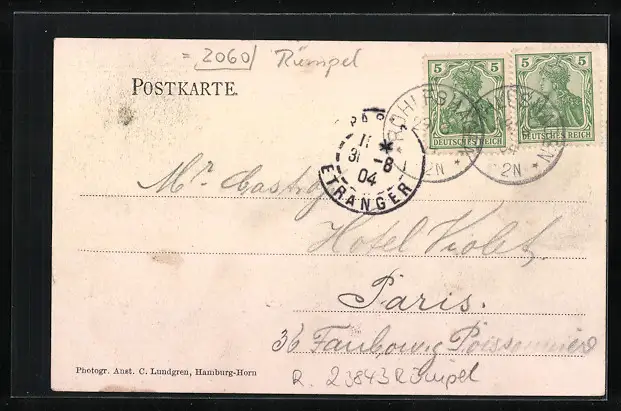 = 2060/ Rümpel
POSTKARTE.
5 5 5 5
DEUTSCHES REICH DEUTSCHES REICH
2N * 2N *
11
31 -8
04
ETRANGER
Mr. Castro
Hotel Violet,
Paris.
36 Faubourg Poissonnière
Photogr. Anst. C. Lundgren, Hamburg-Horn
R. 23843 Rümpel